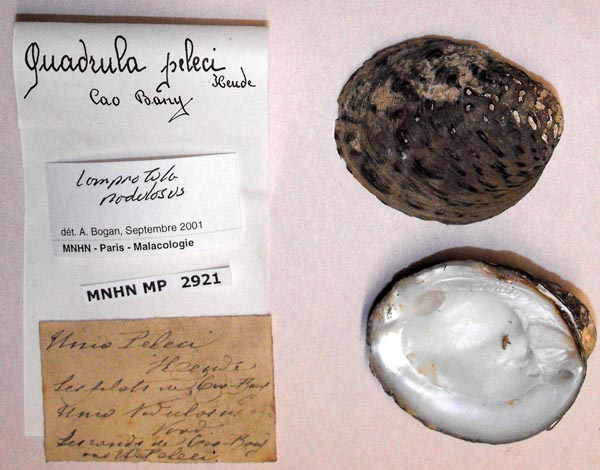 Quadrula peleci
Heude
Cao Bang
Lamprotula
nodulosus
dét. A. Bogan, Septembre 2001
MNHN - Paris - Malacologie
MNHN MP 2921
Unio Peleci
Heude
Les de Cao-Bang
Unio Nodulosus
Wood
Les ronds de Cao-Bang
Peleci